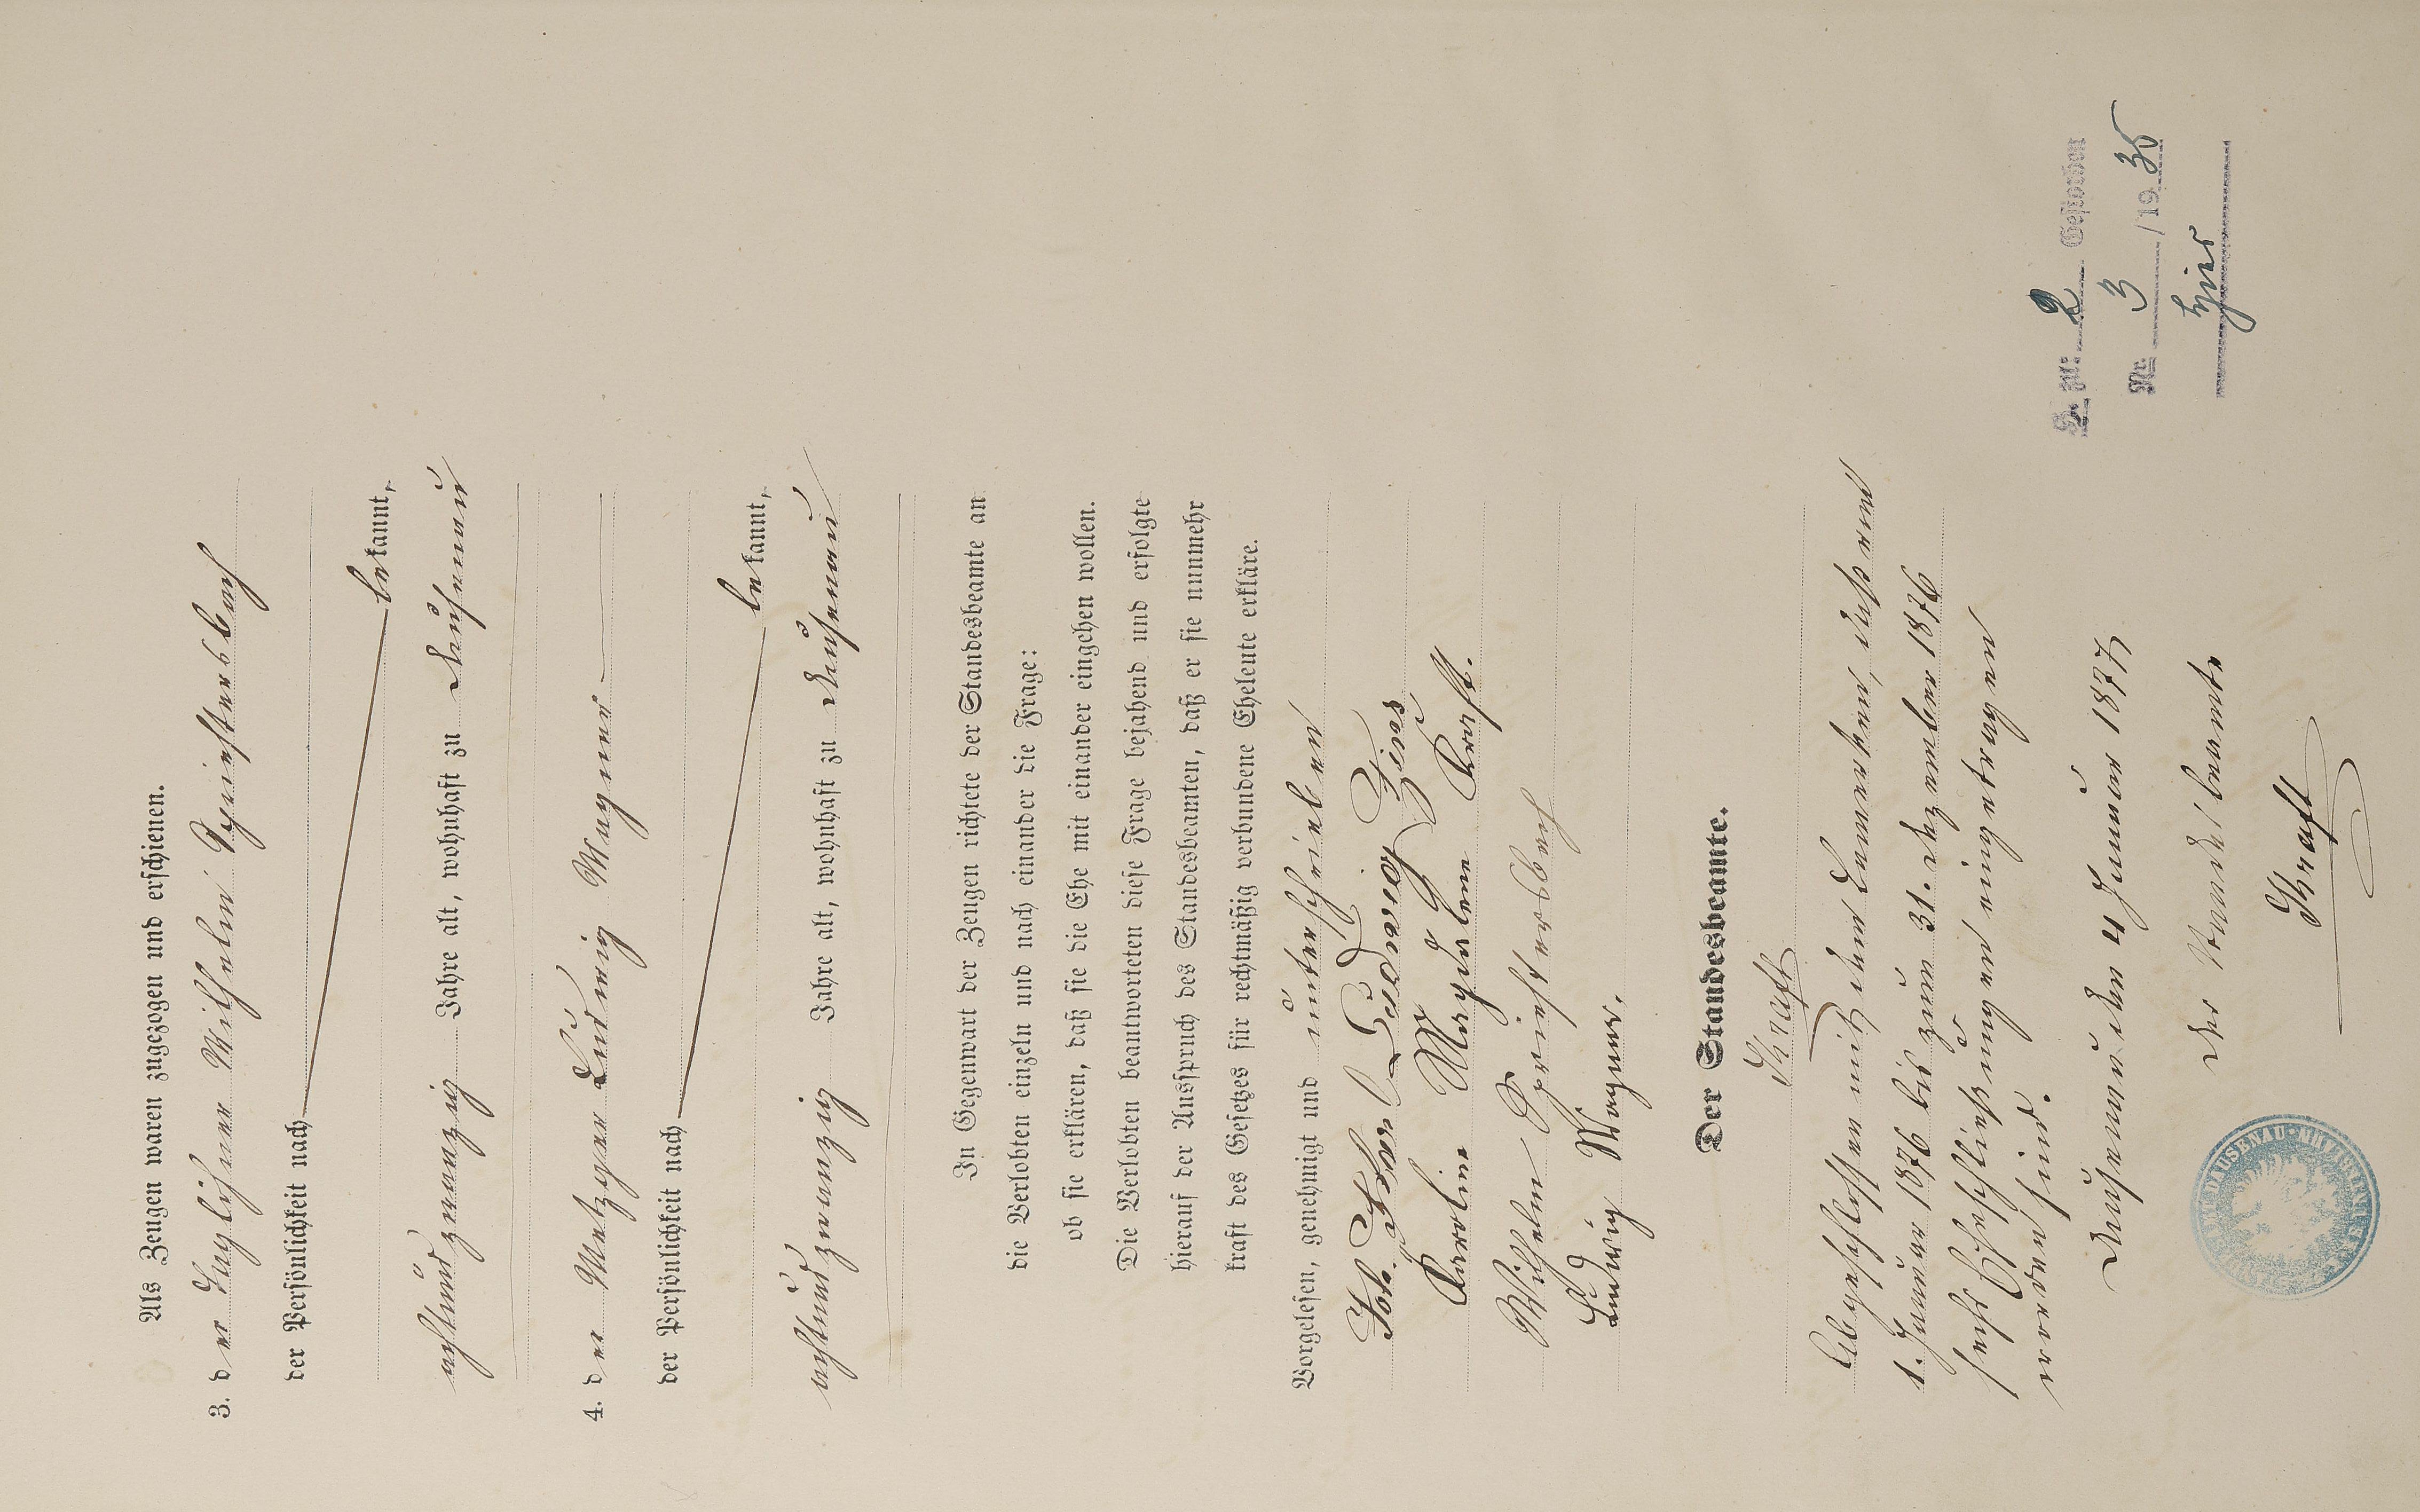 Als Zeugen waren zugezogen und erschienen.
3. der Taglöhner Wilhelm Spriestersbach
der Persönlichkeit nach
bekannt,
achtundzwanzig Jahre alt, wohnhaft zu Dausenau
4. der Metzger Ludwig Wagner
der Persönlichkeit nach
bekannt,
achtundzwanzig Jahre alt, wohnhaft zu Dausenau
In Gegenwart der Zeugen richtete der Standesbeamte an
die Verlobten einzeln und nach einander die Frage:
ob sie erklären, daß sie die Ehe mit einander eingehen wollen.
Die Verlobten beantworteten diese Frage bejahend und erfolgte
hierauf der Ausspruch des Standesbeamten, daß er sie nunmehr
kraft des Gesetzes für rechtmäßig verbundene Eheleute erkläre.
Vorgelesen, genehmigt und unterschrieben
Ludwig
Karoline Magdalene Kraft.
Wilhelm Spriestersbach
Ludwig Wagner.
Der Standesbeamte.
Kraft
Abgeschlossen mit dem Bemerken, dass vom
1. Januar 1876 bis zum 31. Dezember 1876
sechs Eheschließungen eingetragen
worden sind.
Dausenau den 4 Januar 1877
Der Standesbeamte
Kraft
DAUSENAU
zu: 2 Gestorben
Nr. 3 /19 35
hier